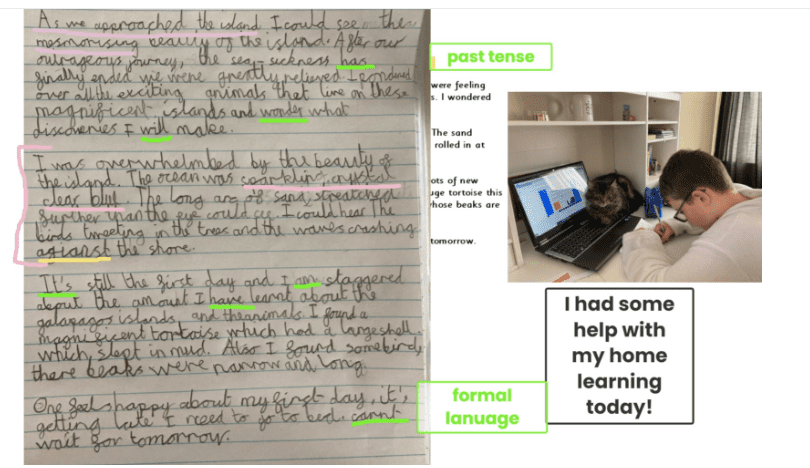 As we approached the island I could see the
mesmorising beauty of the island. After our
outrageous journey, the sea sickness has
finally ended we were greatly relieved. I pondered
over all the exciting animals that live on these
magnificent islands and wonder what
discoveries I will make.
I was overwhelmbed by the beauty of
the island. The ocean was sparkling, crystal
clear blue. The long arc of sand, streatched
further than the eye could see. I could hear the
birds tweeting in the trees and the waves crashing
agianst the shore.
It's still the first day and I am staggered
about the amount I have learnt about the
galapagos islands, and the animals. I found a
magnificent tortoise which had a large shell
which, slept in mud. Also I found some bird,
there beaks were narrow and long.
One feels happy about my first day, it's
getting late I need to go to bed. cannt
wait for tomorrow.
past tense
were feeling
s. I wondered
The sand
rolled in at
ots of new
uge tortoise this
hose beaks are
tomorrow.
I had some
help with
my home
learning
today!
formal
lanuage